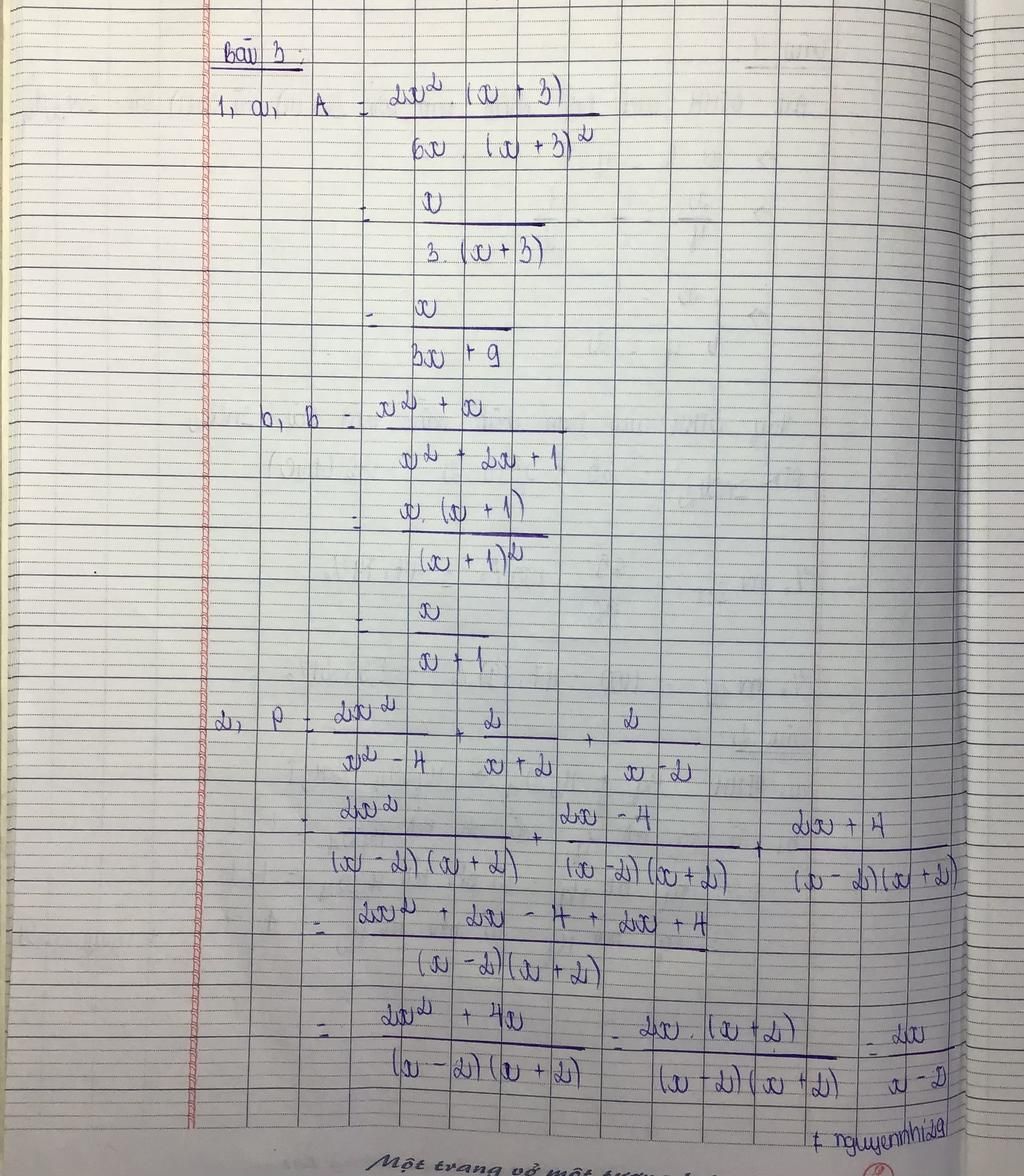 Bài 3:
1, a, A = 2x² . (x + 3) / 6x . (x + 3)²
= x / 3 . (x + 3)
= x / 3x + 9
b, B = x² + x / x² + 2x + 1
= x . (x + 1) / (x + 1)²
= x / x + 1
2, P = 2x² / x² - 4 + 2 / x + 2 + 2 / x - 2
= 2x² / (x - 2)(x + 2) + 2x - 4 / (x - 2)(x + 2) + 2x + 4 / (x - 2)(x + 2)
= 2x² + 2x - 4 + 2x + 4 / (x - 2)(x + 2)
= 2x² + 4x / (x - 2)(x + 2) = 2x . (x + 2) / (x - 2)(x + 2) = 2x / x - 2
nguyennhi29
Một trang vở một